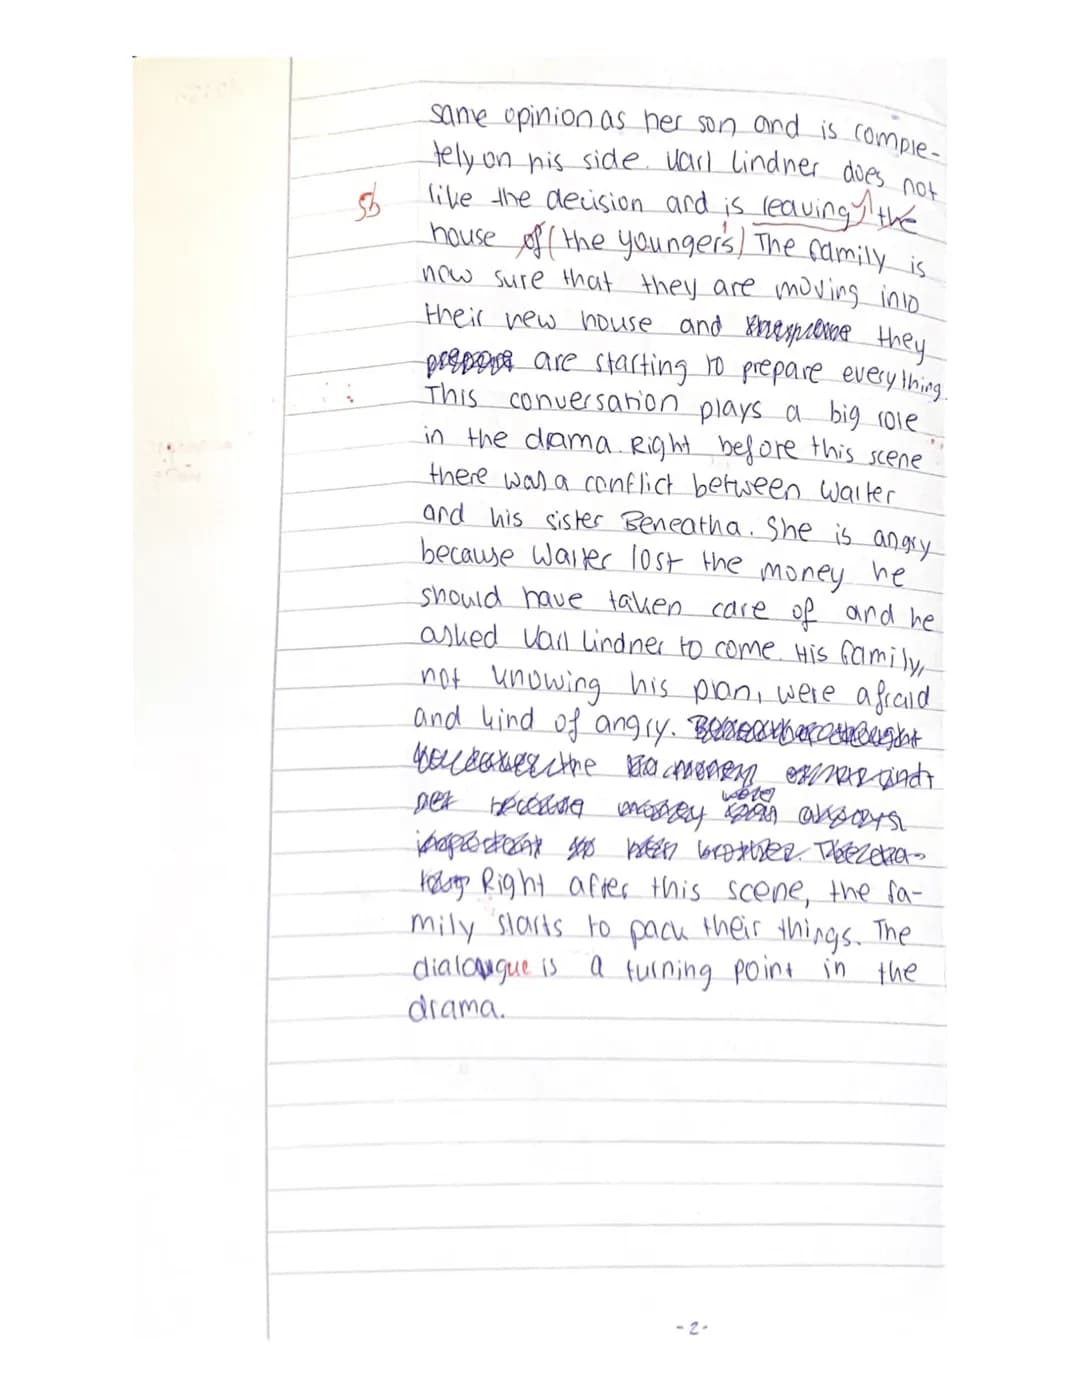 same opinion as her son and is comple-
tely on his side. Karl Lindner does not
Sb like the decision and is leaving the
house of (the youngers) The family is
now sure that they are moving into
their new house and they
prepare are starting to prepare everything.
This conversation plays a big role
in the drama. Right before this scene
there was a conflict between Walter
and his sister Beneatha. She is angry
because Walter lost the money he
should have taken care of and he
asked Karl Lindner to come. His family,
not knowing his plan, were afraid
and kind of angry.
the
were
Right after this scene, the fa-
mily starts to pack their things. The
dialougue is a turning point in the
drama.
-2-